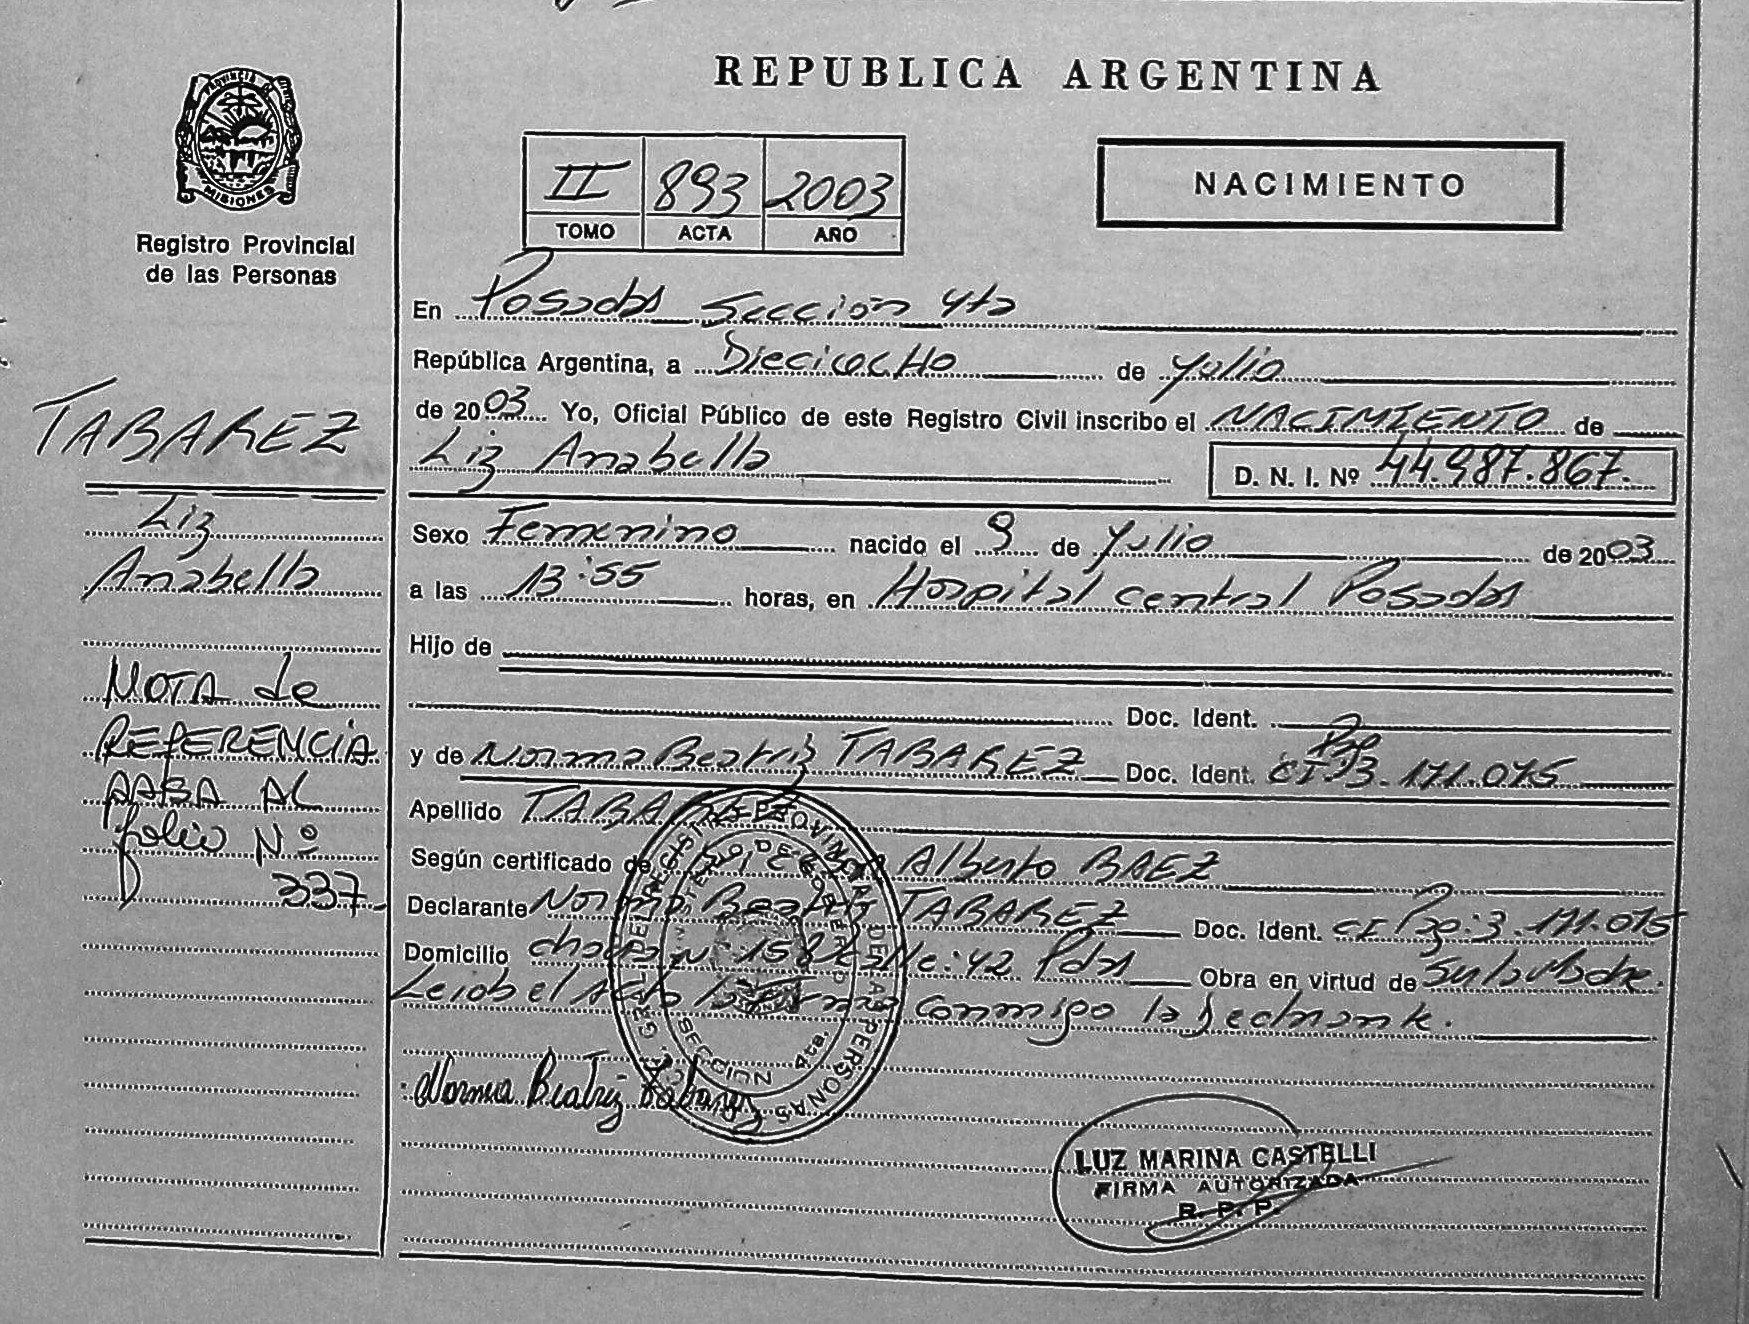 REPUBLICA ARGENTINA
PROVINCIA DE MISIONES
Registro Provincial
de las Personas
II 893 2003
TOMO ACTA AÑO
NACIMIENTO
En Posadas Sección 4ta
República Argentina, a Dieciocho de Julio
de 2003 Yo, Oficial Público de este Registro Civil inscribo el NACIMIENTO de
Liz Anabella D. N. I. Nº 44.987.867.
Sexo Femenino nacido el 9 de Julio de 2003
a las 13:55 horas, en Hospital central Posadas
Hijo de
Doc. Ident.
y de Norma Beatriz TABAREZ Doc. Ident. CI Pgy 3.171.075
Apellido TABAREZ
Según certificado de Alberto BAEZ
Declarante Norma Beatriz TABAREZ Doc. Ident. CI Pgy: 3.171.075
Domicilio chacra Nº 158 calle: 42 Pdas Obra en virtud de
Leida el Acta la firma conmigo la declarante.
Norma Beatriz Tabarez
REGISTRO PROVINCIAL DE LAS PERSONAS
MINISTERIO DE GOBIERNO
SECCION 4ta.
LUZ MARINA CASTELLI
FIRMA AUTORIZADA
R. P. P.
TABAREZ
Liz
Anabella
NOTA de
REFERENCIA
PASA AL
folio Nº
337